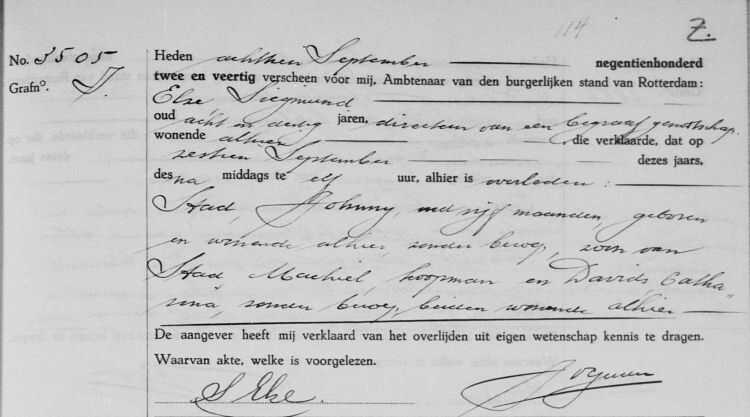 114 Z.
No. 3505 Heden achttien September negentienhonderd
Grafno. J. twee en veertig verscheen vóór mij, Ambtenaar van den burgerlijken stand van Rotterdam:
Else Siegmund
oud acht en dertig jaren, directeur van een begraaf genootschap,
wonende alhier, die verklaarde, dat op
zestien September dezes jaars,
des na middags te elf uur, alhier is overleden:
Stad, Johnny, oud vijf maanden, geboren
en wonende alhier, zonder beroep, zoon van
Stad Machiel, koopman en Davids Catha„
rina, zonder beroep, beiden wonende alhier
De aangever heeft mij verklaard van het overlijden uit eigen wetenschap kennis te dragen.
Waarvan akte, welke is voorgelezen.
S Else